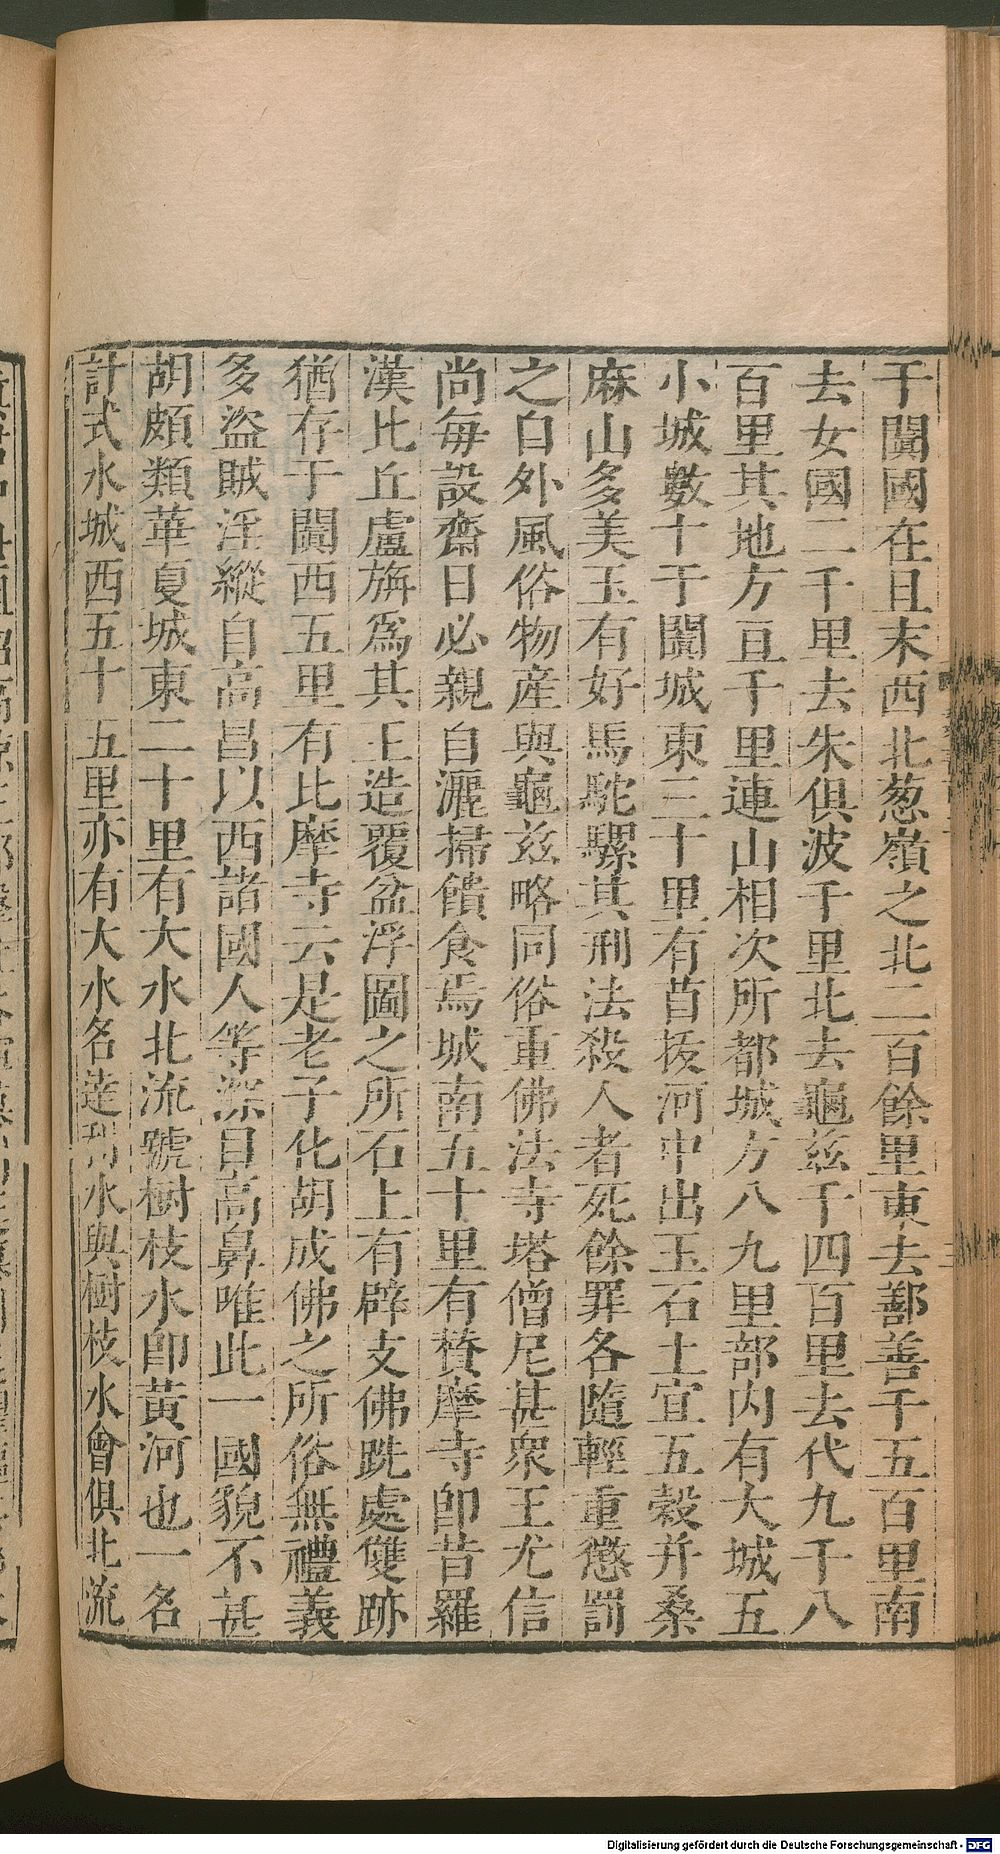 于闐國在且末西北葱嶺之北二百餘里東去鄯善千五百里南
去女國二千里去朱俱波千里北去龜茲千四百里去代九千八
百里其地方亘千里連山相次所都城方八九里部内有大城五
小城數十于闐城東三十里有首抜河中出玉石土宜五穀并桑
麻山多美玉有好馬駝騾其刑法殺人者死餘罪各隨輕重懲罰
之自外風俗物産與龜茲略同俗重佛法寺塔僧尼甚衆王尤信
尚毎設齋日必親自灑掃饋食焉城南五十里有贊摩寺即昔羅
漢比丘盧旃爲其王造覆盆浮圖之所石上有辟支佛跣處雙跡
猶存于闐西五里有比摩寺云是老子化胡成佛之所俗無禮義
多盜賊淫縱自高昌以西諸國人等深目高鼻唯此一國貌不甚
胡頗類華夏城東二十里有大水北流號樹枝水即黃河也一名
計式水城西五十五里亦有大水名達利水與樹枝水會俱北流
Digitalisierung gefördert durch die Deutsche Forschungsgemeinschaft - DFG